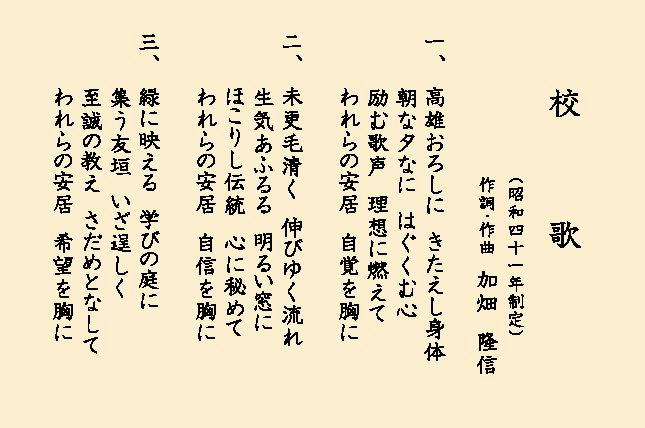 校歌
（昭和四十一年制定）
作詞・作曲　加畑　隆信
一、高雄おろしに　きたえし身体
朝な夕なに　はぐくむ心
励む歌声　理想に燃えて
われらの安居　自覚を胸に
二、未更毛清く　伸びゆく流れ
生気あふるる　明るい窓に
ほこりし伝統　心に秘めて
われらの安居　自信を胸に
三、緑に映える　学びの庭に
集う友垣　いざ逞しく
至誠の教え　さだめとなして
われらの安居　希望を胸に